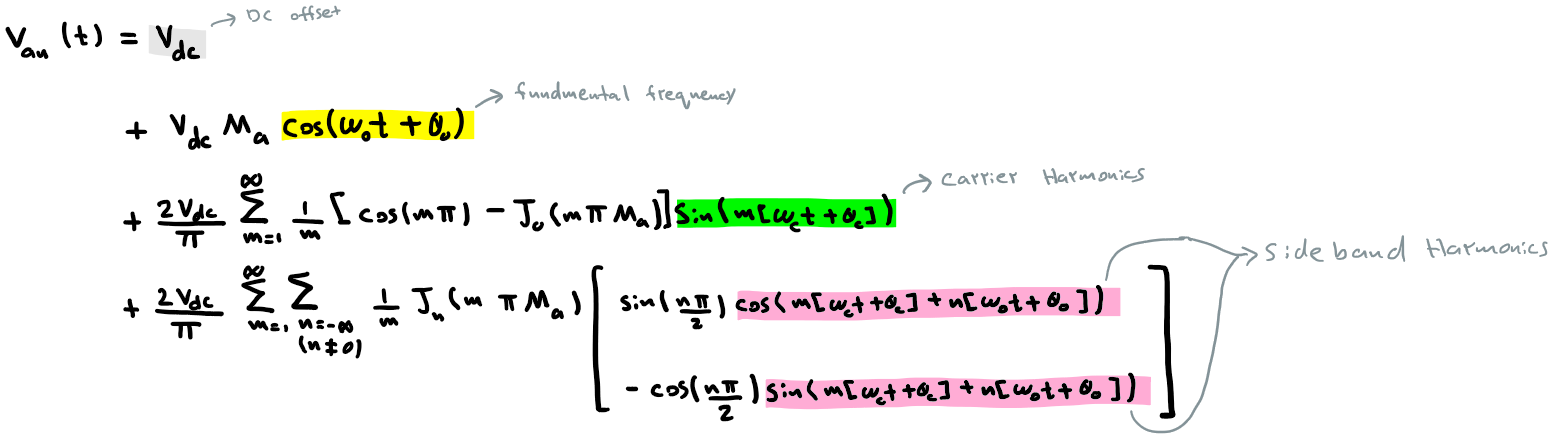 V_an (t) = V_dc → DC offset
+ V_dc M_a cos(ω_o t + θ_o) → fundmental frequency
+ 2V_dc/π ∑_{m=1}^{∞} 1/m [cos(mπ) − J_o(mπM_a)] sin(m[ω_c t + θ_c]) → Carrier Harmonics
+ 2V_dc/π ∑_{m=1}^{∞} ∑_{n=-∞ (n≠0)} 1/m J_n(m π M_a) [ sin(nπ/2) cos(m[ω_c t + θ_c] + n[ω_o t + θ_o]) → Sideband Harmonics
− cos(nπ/2) sin(m[ω_c t + θ_c] + n[ω_o t + θ_o]) ]